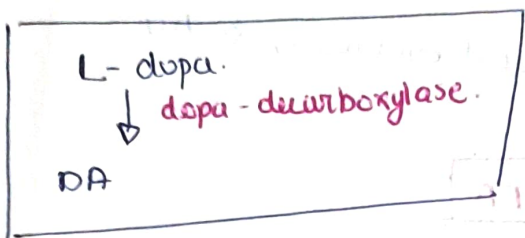 L- dopa.
dopa-decarboxylase.
DA